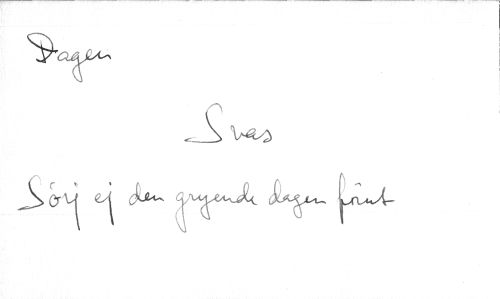 Dagen
Svas
Sörj ej den gryende dagen förut